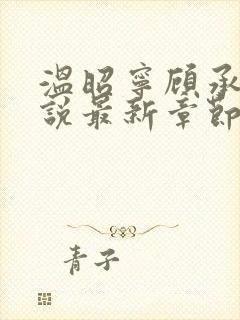 溫昭寧顧承
說最新章節
青子